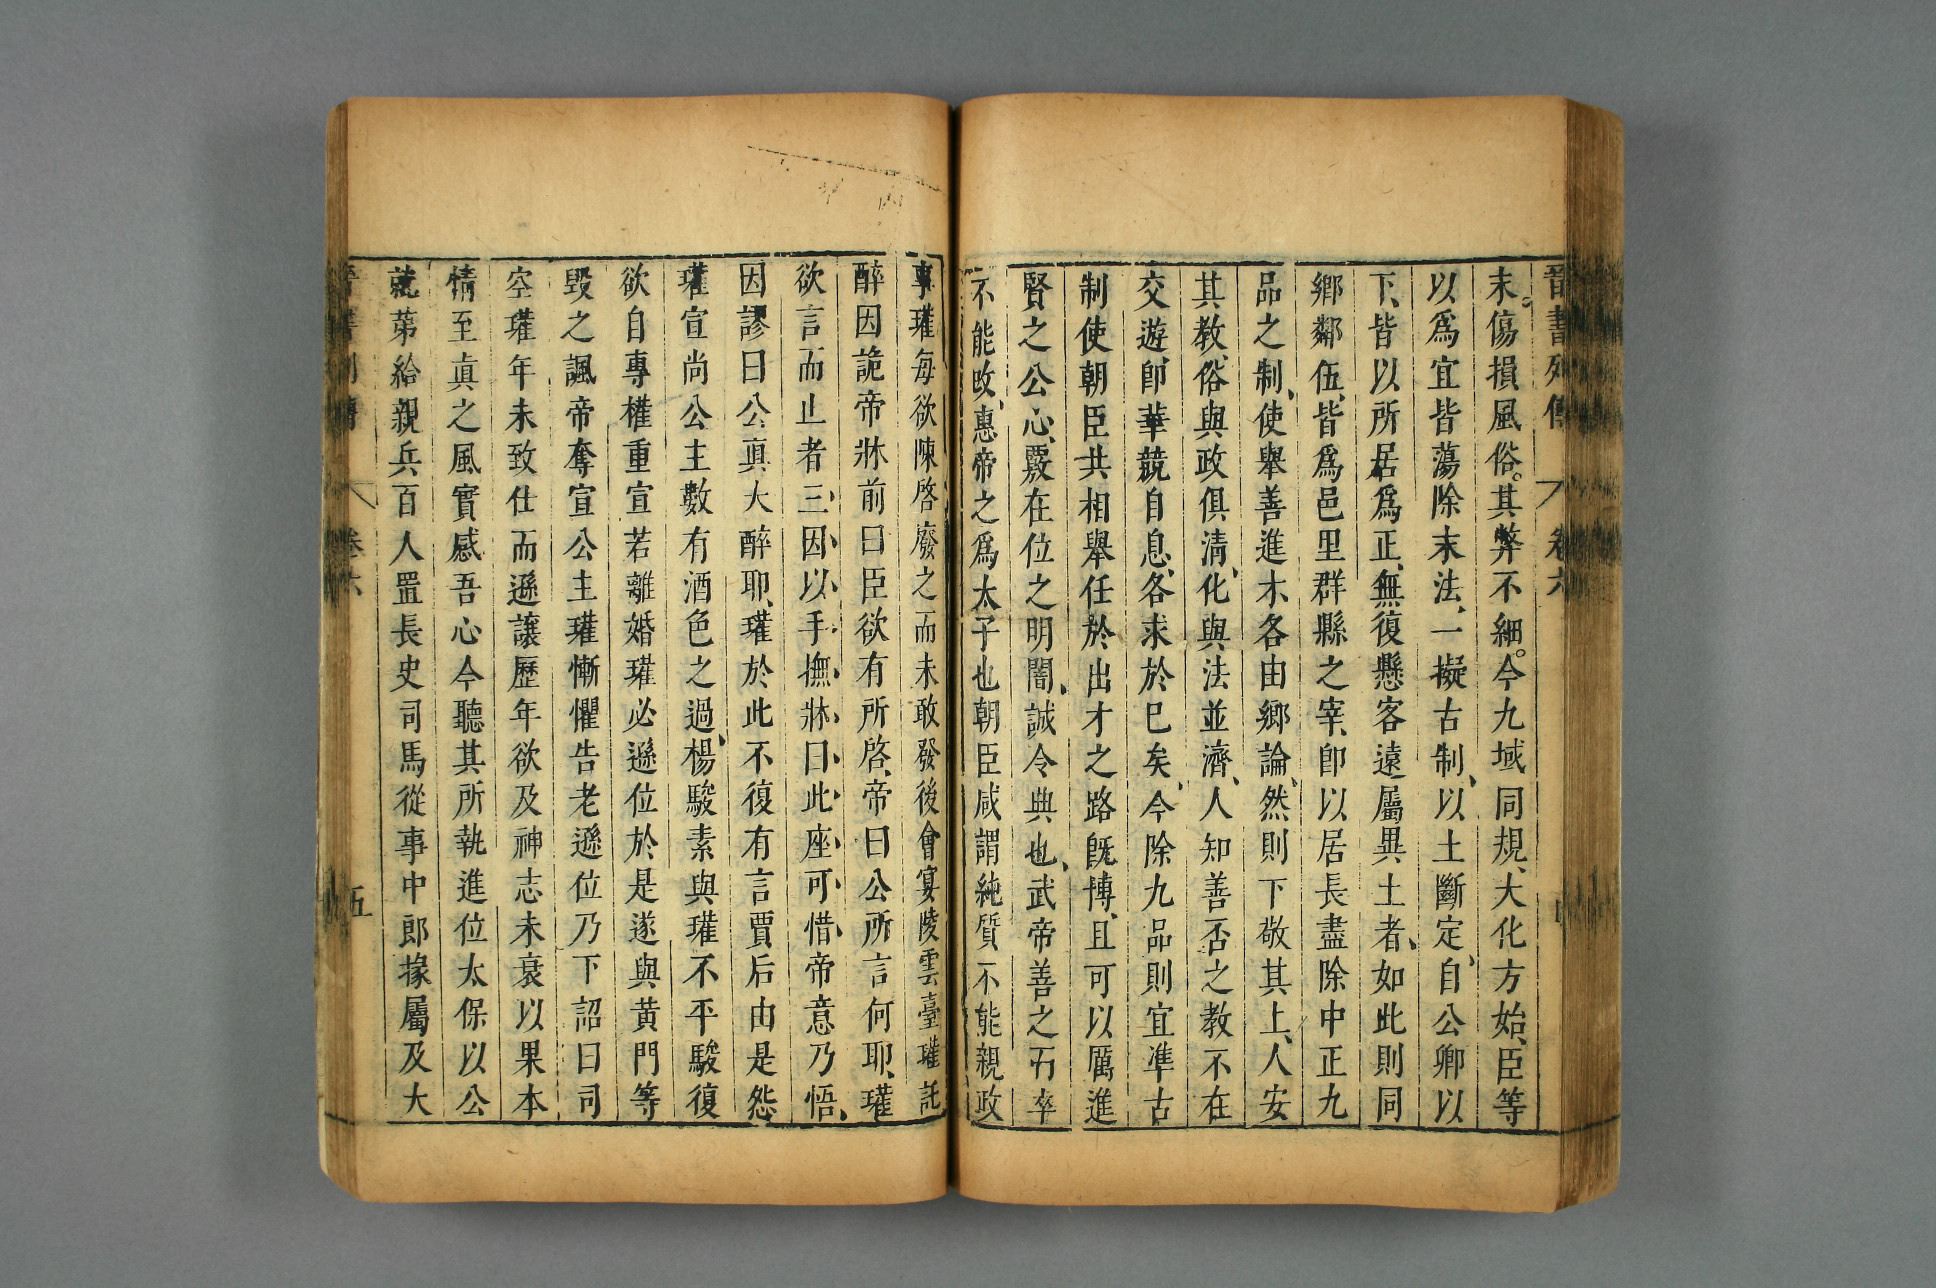 晉書列傳 卷六
末傷損風俗。其弊不細。今九域同規、大化方始、臣等
以爲宜皆蕩除末法、一擬古制、以土斷定、自公卿以
下、皆以所居爲正、無復懸客遠屬異土者、如此則同
鄉鄰伍、皆爲邑里群縣之宰、卽以居長盡除中正九
品之制、使舉善進才、各由鄉論、然則下敬其上、人安
其教、俗與政俱清、化與法並濟、人知善否之教不在
交遊、卽華競自息、各求於已矣、今除九品則宜準古
制使朝臣共相舉任於出才之路旣博、且可以厲進
賢之公心、覈在位之明闇、誠令典也、武帝善之而卒
不能改、惠帝之爲太子也朝臣咸謂純質不能親政
事瓘每欲陳啓廢之而未敢發後會宴陵雲臺瓘託
醉因詭帝牀前曰臣欲有所啓、帝曰公所言何耶、瓘
欲言而止者三因以手撫牀曰此座可惜帝意乃悟、
因謬曰公眞大醉耶、瓘於此不復有言賈后由是怨
瓘宣尚公主數有酒色之過、楊駿素與瓘不平駿復
欲自專權重宣若離婚瓘必遜位於是遂與黃門等
毀之諷帝奪宣公主瓘慚懼告老遜位乃下詔曰司
空瓘年未致仕而遜讓歷年欲及神志未衰以果本
情至眞之風實感吾心今聽其所執進位太保以公
就第給親兵百人置長史司馬從事中郎掾屬及大
晉書列傳 卷六 五